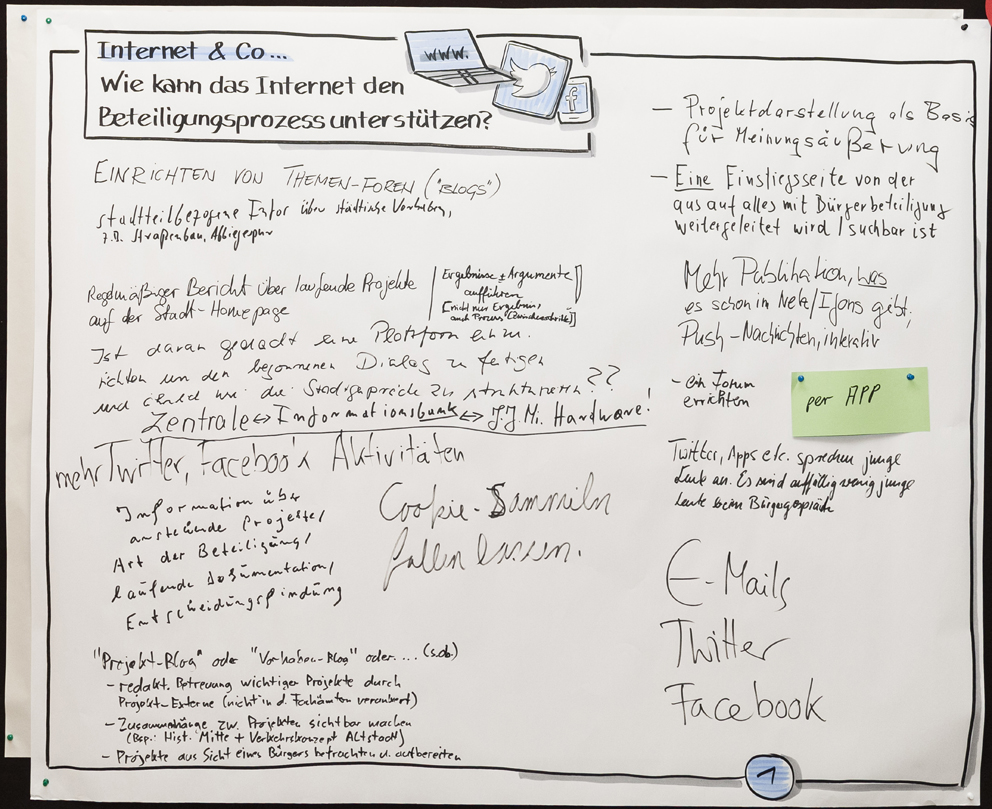 Internet & Co...
www.
Wie kann das Internet den
Beteiligungsprozess unterstützen?
f
EINRICHTEN VON THEMEN-FOREN ("BLOGS")
stadtteilbezogene Infos über städtische Vorhaben,
z.B. Straßenbau, Abbiegespur
Regelmäßiger Bericht über laufende Projekte
auf der Stadt-Homepage
Ergebnisse + Argumente
aufführen
[nicht nur Ergebnis,
auch Prozess (Zwischenschritte)]
Ist daran gedacht eine Plattform
den begonnenen Dialog zu
und die Stadtgespräche zu strukturieren??
Zentrale ↔ Informationsbank ↔ Hardware!
mehr Twitter, Facebook Aktivitäten
Information über
anstehende Projekte/
Art der Beteiligung/
laufende Dokumentation/
Entscheidungsfindung
Cookie-Sammeln
fallen lassen.
"Projekt-Blog" oder "Vorhaben-Blog" oder.... (s.ob.)
- redakt. Betreuung wichtiger Projekte durch
Projekt-Externe (nicht in d. Fachämtern verankert)
- Zusammenhänge zw. Projekten sichtbar machen
(Bsp.: Hist. Mitte + Verkehrskonzept Altstadt)
- Projekte aus Sicht eines Bürgers betrachten u. aufbereiten
- Projektdarstellung als Basis
für Meinungsäußerung
- Eine Einstiegsseite von der
aus auf alles mit Bürgerbeteiligung
weitergeleitet wird / suchbar ist
Mehr Publikation, was
es schon im Netz/Infos gibt,
Push-Nachrichten, interaktiv
- ein Forum
errichten
per APP
Twitter, Apps etc. sprechen junge
Leute an. Es sind auffällig wenig junge
Leute beim Bürgergespräch
E-Mails
Twitter
Facebook
1